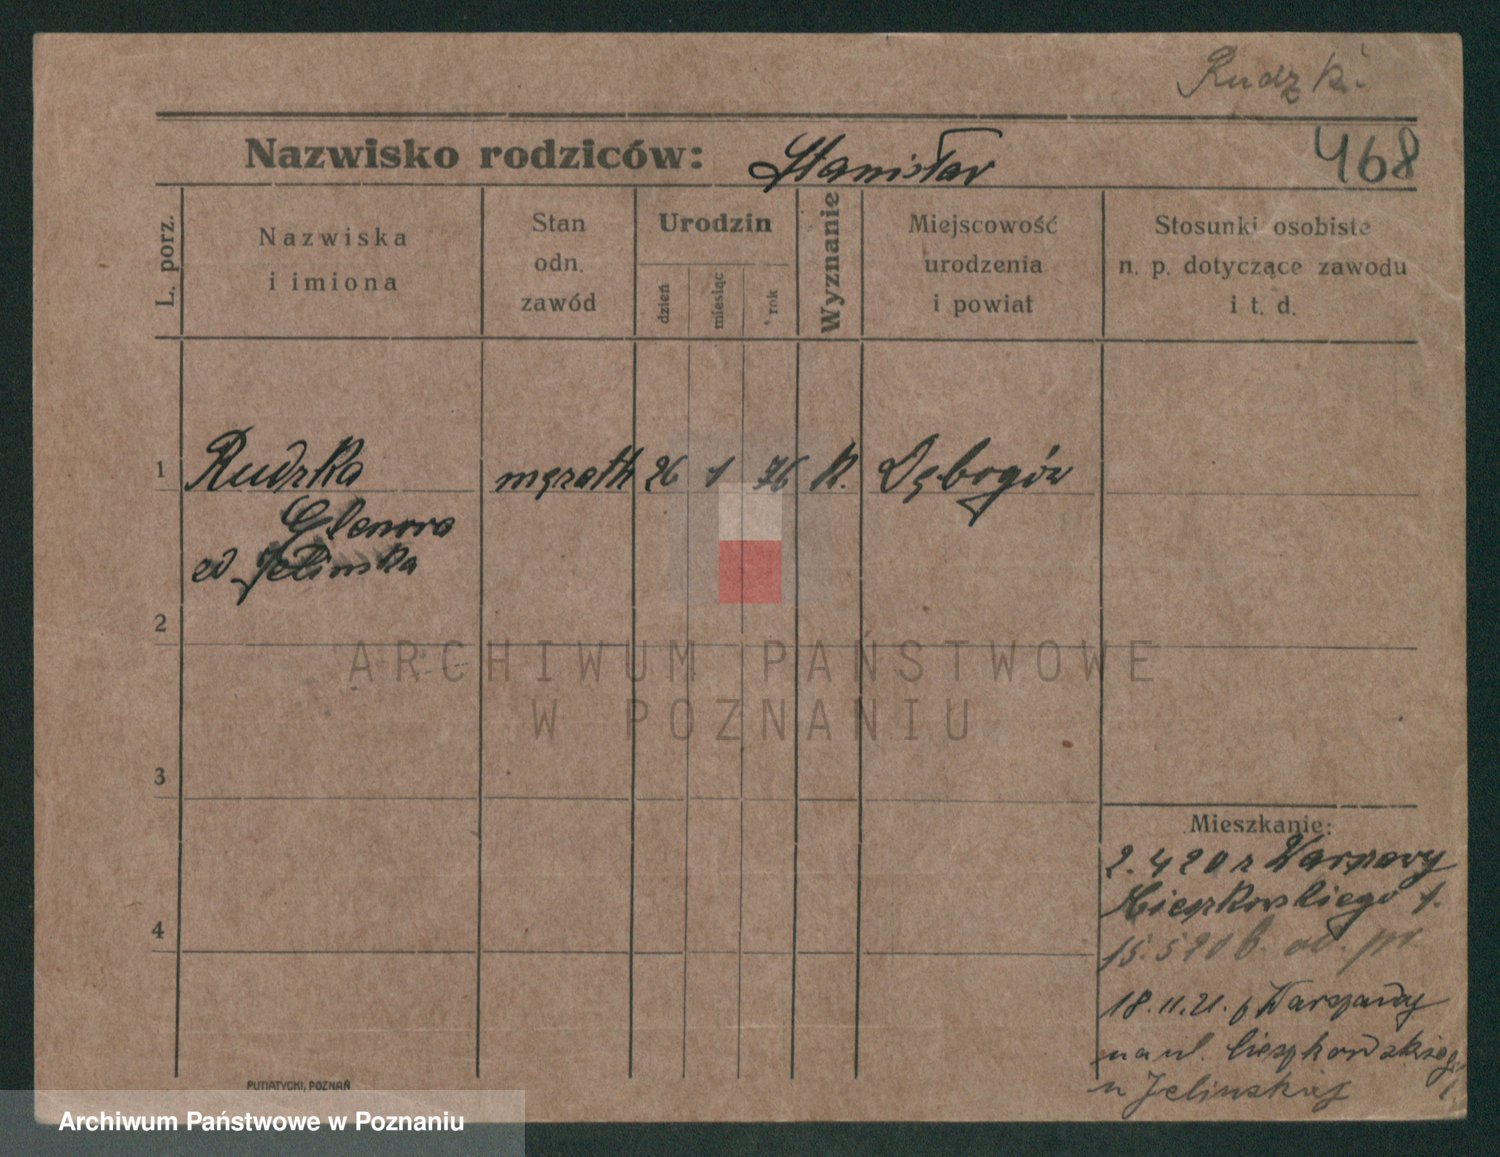 Rudzki
Nazwisko rodziców: Stanisław
468
L. porz.
Nazwiska
i imiona
Stan
odn.
zawód
Urodzin
dzień
miesiąc
rok
Wyznanie
Miejscowość
urodzenia
i powiat
Stosunki osobiste
n. p. dotyczące zawodu
i t. d.
1 Rudzka 26 1 76 K. Dębogóra
Elenora
Jelinska
2
3
4
Mieszkanie:
2.4 20 z Warszawy
Cieszkowskiego 1.
15.5 20
18.11.21. z Warszawy
na ul. Cieszkowskiego
u Jelinskiej
PUTIATYCKI, POZNAŃ
ARCHIWUM PAŃSTWOWE
W POZNANIU
Archiwum Państwowe w Poznaniu